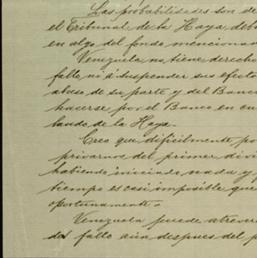 Las probabilidades son de
el Tribunal de la Haya deb
en algo del fondo mencionad
Venezuela no tiene derecho
fallo ni á suspender sus efecto
abuso de su parte y del Banc
hacerse por el Banco en cu
lo de la Haya.
Creo que dificilmente po
privarnos del primer divi
habiendo iniciado nada y
tiempo es casi imposible que
oportunamente.
Venezuela puede atrever
del fallo aún despues del p